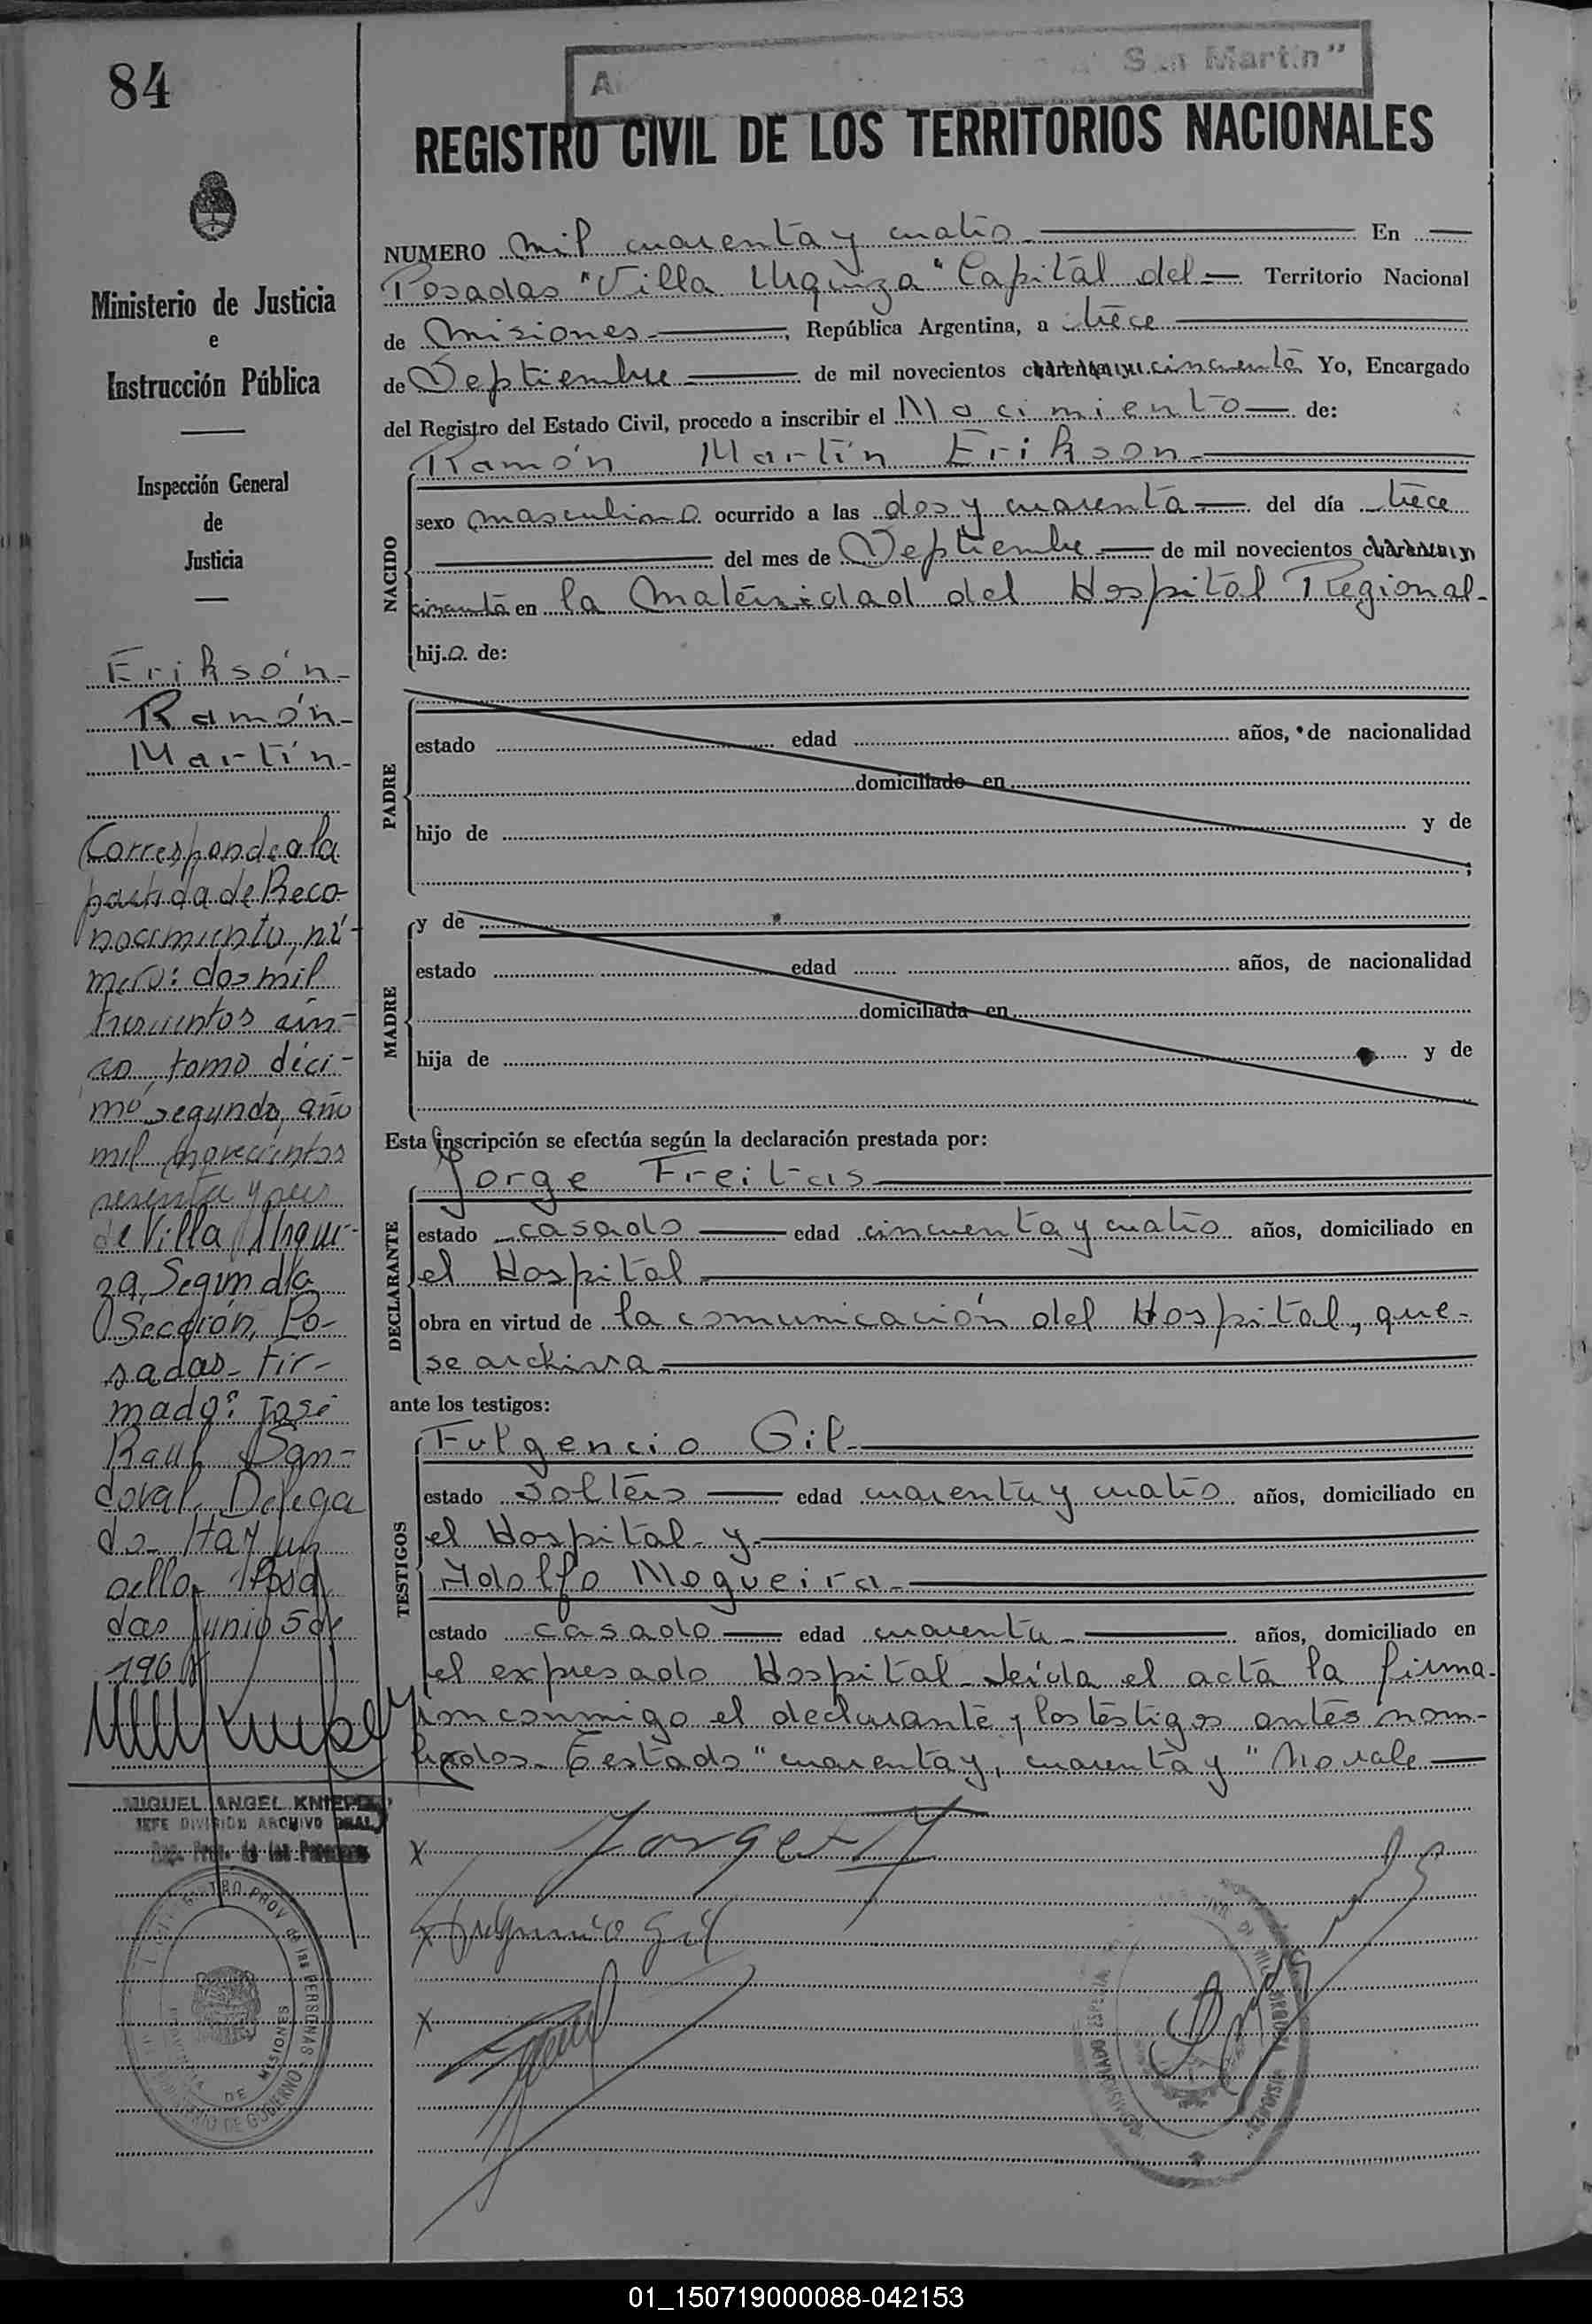 84
San Martín"
REGISTRO CIVIL DE LOS TERRITORIOS NACIONALES
Ministerio de Justicia
e
Instrucción Pública
Inspección General
de
Justicia
NUMERO mil cuarenta y cuatro En
Posadas "Villa Urquiza" Capital del Territorio Nacional
de Misiones, República Argentina, a trece
de Septiembre de mil novecientos cuarenta y cincuenta Yo, Encargado
del Registro del Estado Civil, procedo a inscribir el Nacimiento de:
Ramón Martín Erikson
NACIDO
sexo masculino ocurrido a las dos y cuarenta del día trece
del mes de Septiembre de mil novecientos cuarenta y
cincuenta en la Maternidad del Hospital Regional.
hijo de:
PADRE
estado edad años, de nacionalidad
domiciliado en
hijo de y de
;
MADRE
y de
estado edad años, de nacionalidad
domiciliada en
hija de y de
Esta inscripción se efectúa según la declaración prestada por:
Jorge Freitas
DECLARANTE
estado casado edad cincuenta y cuatro años, domiciliado en
el Hospital
obra en virtud de la comunicación del Hospital, que
se archiva
ante los testigos:
TESTIGOS
Fulgencio Gil
estado soltero edad cuarenta y cuatro años, domiciliado en
el Hospital y
Adolfo Nogueira
estado casado edad cuarenta años, domiciliado en
el expresado Hospital. Leída el acta la firma-
ron conmigo el declarante y los testigos antes nom-
brados. Testado "cuarenta y, cuarenta y" No vale
Erikson
Ramón
Martín
Corresponde a la
partida de Reco-
nocimiento, nú-
mero: dos mil
trescientos cin-
co, tomo déci-
mo segundo, año
mil novecientos
de Villa Urqui-
za, Segunda
Sección, Po-
sadas. Fir-
mado: José
Raul San-
doval. Delega
do. Hay un
sello. Posa
das Junio 5 de
MIGUEL ANGEL KNIEPP
JEFE DIVISION ARCHIVO GRAL.
Reg. Prov. de las Personas
PROV. de las PERSONAS
MINISTERIO DE GOBIERNO
PROVINCIA DE MISIONES
x Jorge F
x Fulgencio Gil
x
01_150719000088-042153